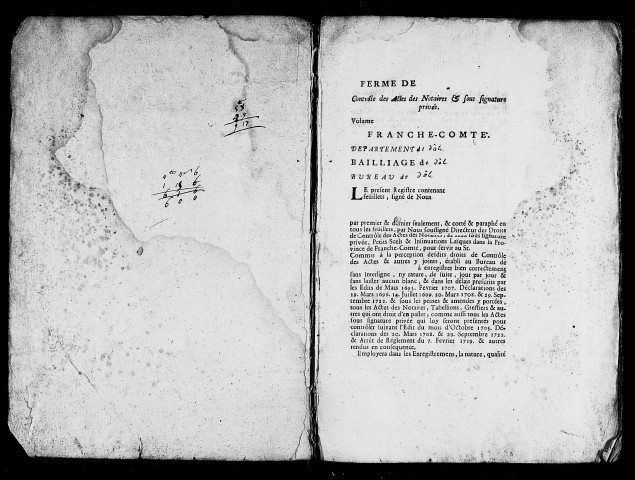 FERME DE
Contrôle des Actes des Notaires & sous signature
privée.
Volume
FRANCHE-COMTÉ.
DEPARTEMENT de Dôle
BAILLIAGE de Dôle
BUREAU de Dôle
LE present Registre contenant
feüillets, signé de Nous
par premier & dernier seulement, & cotté & paraphé en
tous les feüillets, par Nous soussigné Directeur des Droits
de Contrôle des Actes des Notaires, & sous signature
privée, Petits Scels & Insinuations Laïques dans la Pro-
vince de Franche-Comté, pour servir au Sr.
Commis à la perception desdits droits de Contrôle
des Actes & autres y joints, établi au Bureau de
à enregistrer bien correctement
sans interligne, ny rature, de suite, jour par jour &
sans laisser aucun blanc, & dans le délay prescrits par
les Edits de Mars 1693. Fevrier 1707. Déclarations des
19. Mars 1696. 14. Juillet 1699. 20. Mars 1708. & 29. Sep-
tembre 1722. & sous les peines & amendes y portées,
tous les Actes des Notaires, Tabellions, Greffiers & au-
tres qui ont droit d'en passer, comme aussi tous les Actes
sous signature privée qui luy seront presentés pour
contrôler suivant l'Edit du mois d'Octobre 1705. Dé-
clarations des 20. Mars 1708. & 29. Septembre 1722.
& Arrêt de Réglement du 7. Fevrier 1719. & autres
rendus en consequence.
Employera dans les Enregistremens, la nature, qualité